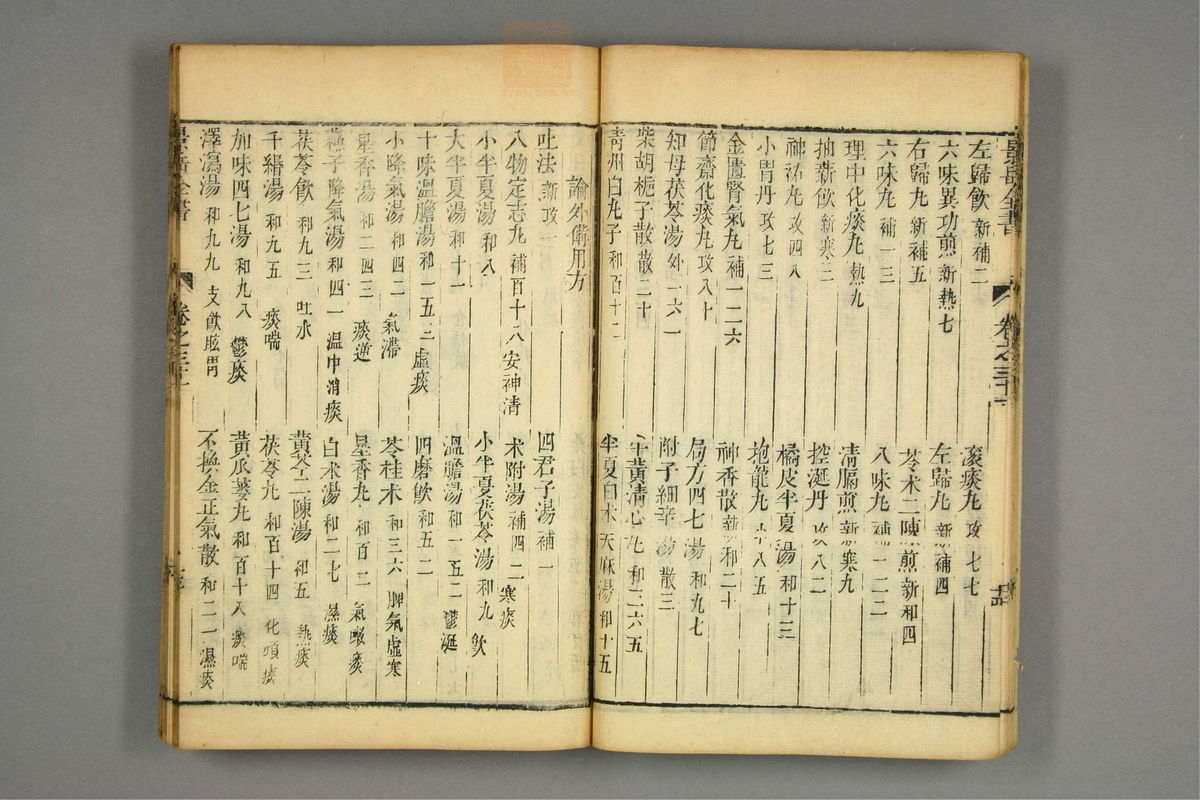 景岳全書
卷之三十一
左歸飲 新補二 滾痰丸 攻七七
六味異功煎 新熱七 左歸丸 新補四
右歸丸 新補五 苓术二陳煎 新和四
六味丸 補一三 八味丸 補一二二
理中化痰丸 熱九 清膈煎 新寒九
抽薪飲 新寒三 控涎丹 攻八二
神祐丸 攻四八 橘皮半夏湯 和十三
小胃丹 攻七三 地龍丸 八五
金匱腎氣丸 補一二六 神香散 新和二十
節齋化痰丸 攻八十 局方四七湯 和九七
知母茯苓湯 外一六一 附子細辛湯 散三
柴胡梔子散 散二十四 牛黃清心丸 和三六五
青州白丸子 和百十二 半夏白朮天麻湯 和十五
論外備用方
吐法 新攻一 四君子湯 補一
八物定志丸 補百十八 安神清 术附湯 補四二 寒痰
小半夏湯 和八 小半夏茯苓湯 和九 飲
大半夏湯 和十一 溫膽湯 和一五二 鬱涎
十味溫膽湯 和一五三 虛痰 四磨飲 和五二
小降氣湯 和四二 氣滯 苓桂术 和三六 脾氣虛寒
星香湯 和二四三 痰逆 星香丸 和百二 氣嗽痰
蘇子降氣湯 和四一 温中消痰 白朮湯 和二七 濕痰
茯苓飲 和九三 吐水 黃芩二陳湯 和五 熱痰
千緡湯 和九五 痰喘 茯苓丸 和百十四 化頑痰
加味四七湯 和九八 鬱痰 黃瓜蔞丸 和百十八 痰喘
澤瀉湯 和九九 支飲眩冒 不換金正氣散 和二一 濕痰
景岳全書
卷之三十一